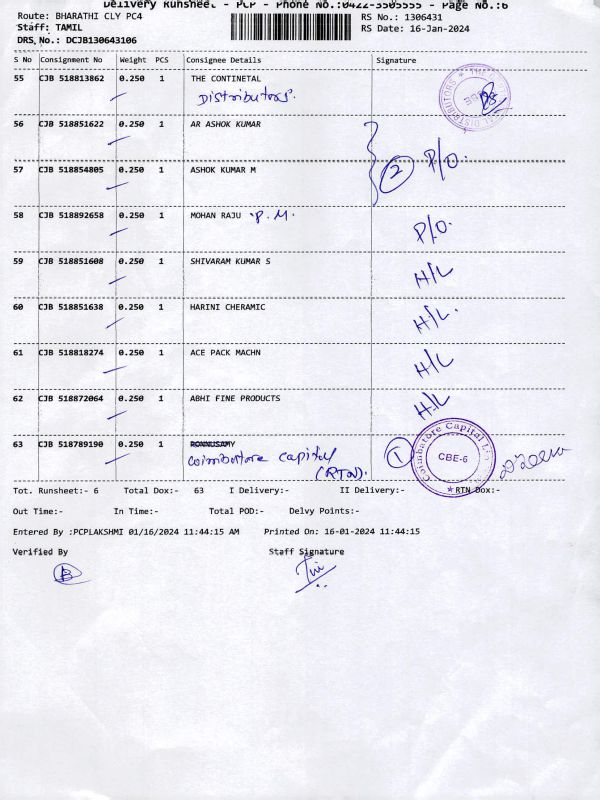 Delivery Runsheet - PCP - Phone No.:0422-3505555 - Page No.:6
Route: BHARATHI CLY PC4 RS No.: 1306431
Staff: TAMIL RS Date: 16-Jan-2024
DRS No.: DCJB130643106
S No Consignment No Weight PCS Consignee Details Signature
55 CJB 518813862 0.250 1 THE CONTINETAL
Distributors.
56 CJB 518851622 0.250 1 AR ASHOK KUMAR
2 P/O.
57 CJB 518854805 0.250 1 ASHOK KUMAR M
58 CJB 518892658 0.250 1 MOHAN RAJU P.M. P/O.
59 CJB 518851608 0.250 1 SHIVARAM KUMAR S H/L
60 CJB 518851638 0.250 1 HARINI CHERAMIC H/L.
61 CJB 518818274 0.250 1 ACE PACK MACHN H/L
62 CJB 518872064 0.250 1 ABHI FINE PRODUCTS H/L
63 CJB 518789190 0.250 1
Coimbatore Capital 1 Coimbatore Capital CBE-6
(RTN).
Tot. Runsheet:- 6 Total Dox:- 63 I Delivery:- II Delivery:- RTN Dox:-
Out Time:- In Time:- Total POD:- Delvy Points:-
Entered By :PCPLAKSHMI 01/16/2024 11:44:15 AM Printed On: 16-01-2024 11:44:15
Verified By Staff Signature